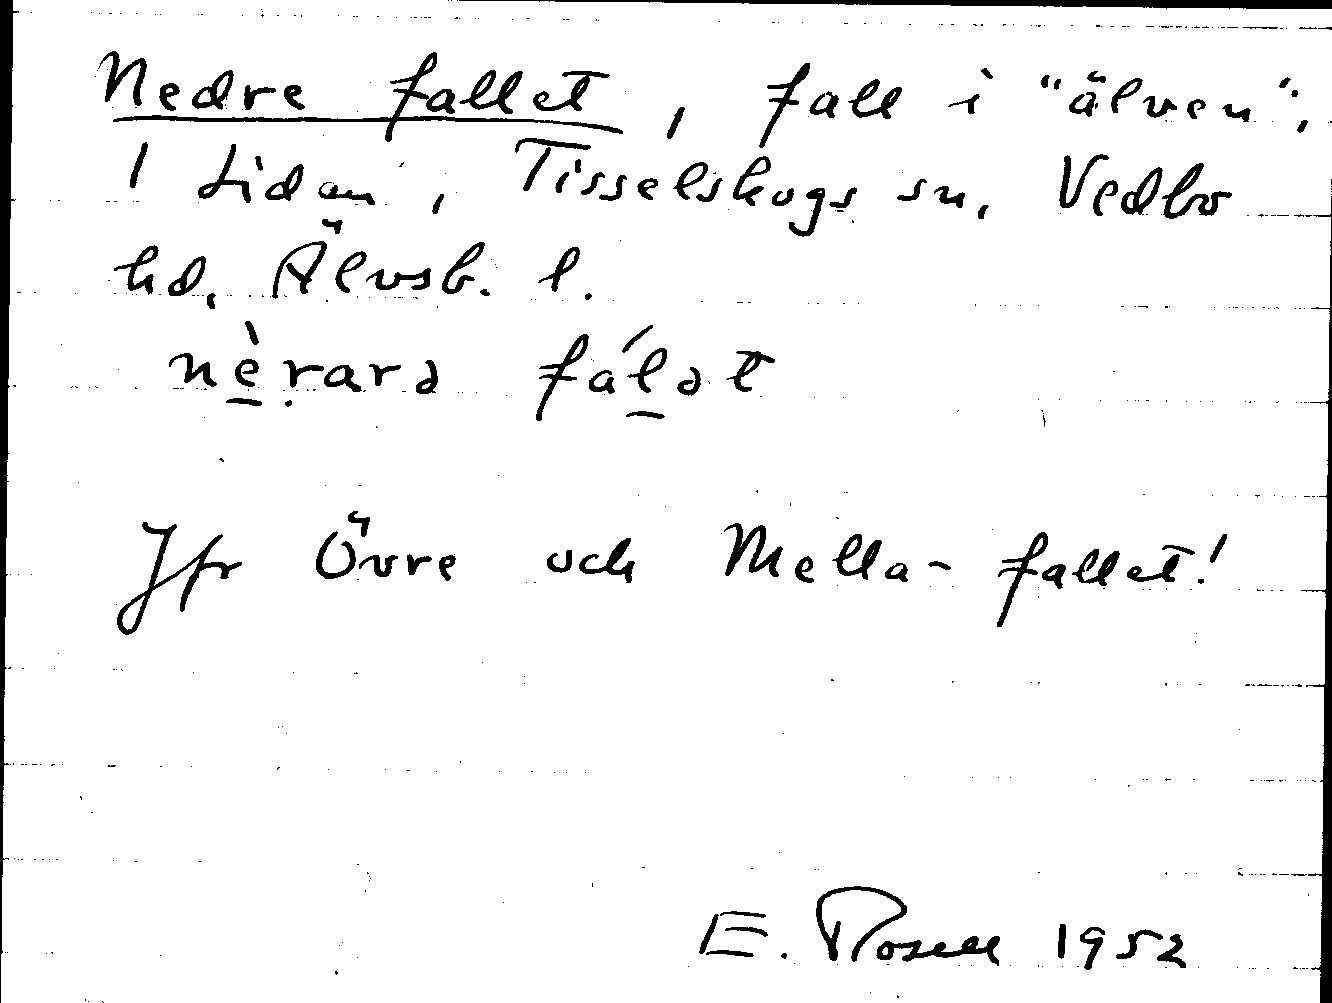 Nedre fallet, fall i "älven",
1 sidan, Tisselskogs sn, Vedbo
hd, Älvsb. l.
nè̱ṛarə fáḻət
Jfr Övre och Mella-fallet!
E. Rosell 1952